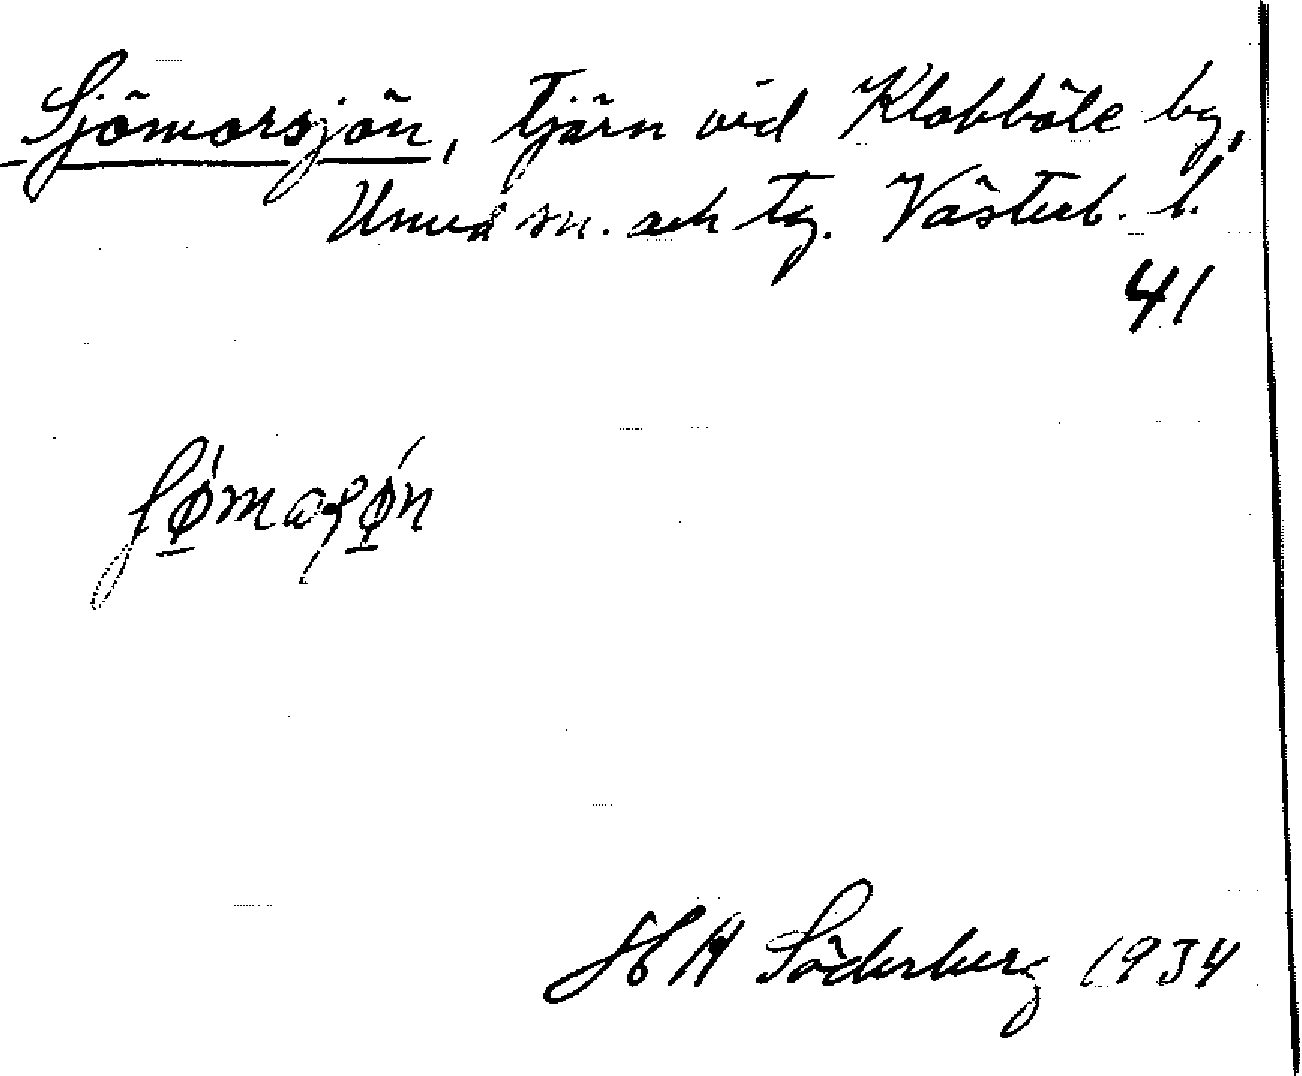 Sjömorsjön, tjärn vid Klabböle by,
Umeå sn. och tg. Västerb. l.
41
H A Söderberg 1934